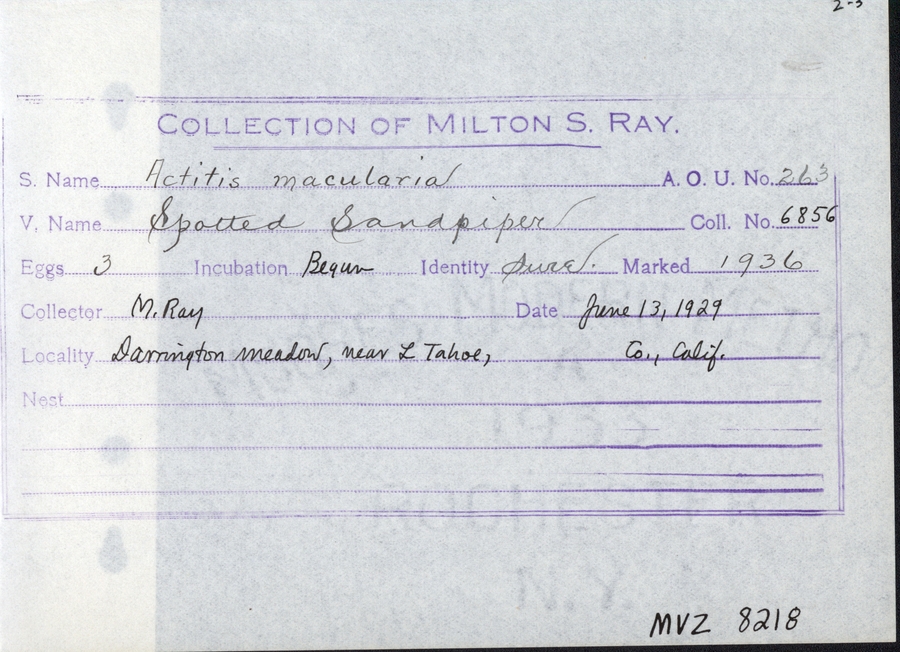 2-3
COLLECTION OF MILTON S. RAY.
S. Name Actitis macularia A. O. U. No. 263
V. Name Spotted Sandpiper Coll. No. 6856
Eggs 3 Incubation Begun Identity Sure. Marked 1936
Collector M. Ray Date June 13, 1929
Locality Darrington meadow, near L Tahoe, Co., Calif.
Nest
MVZ 8218